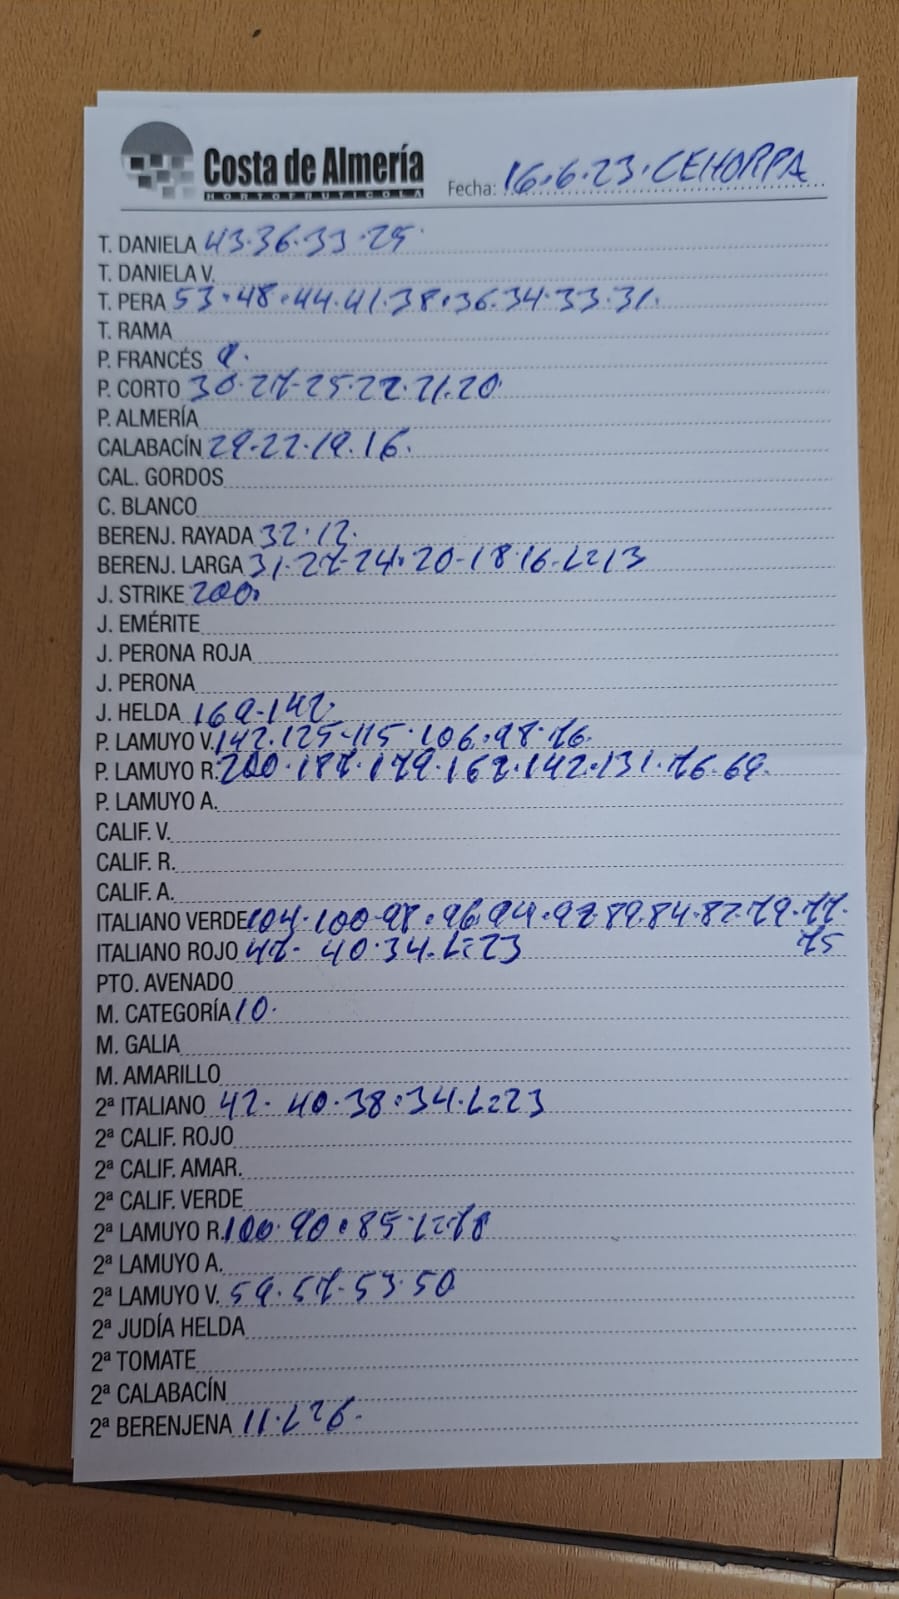 Costa de Almería
HORTOFRUTICOLA
Fecha: 16.6.23.CEHORPA
T. DANIELA 43.36.33.25
T. DANIELA V.
T. PERA 53.48.44.41.38.36.34.33.31.
T. RAMA
P. FRANCÉS 9.
P. CORTO 30.27-25.22.21.20
P. ALMERÍA
CALABACÍN 29.22.19.16.
CAL. GORDOS
C. BLANCO
BERENJ. RAYADA 32.12.
BERENJ. LARGA 31.27-24.20-18 16.L=13
J. STRIKE 200.
J. EMÉRITE
J. PERONA ROJA
J. PERONA
J. HELDA 169-142.
P. LAMUYO V. 142.125-115.106.98.76.
P. LAMUYO R. 200.187.179.162.142.131.76.69.
P. LAMUYO A.
CALIF. V.
CALIF. R.
CALIF. A.
ITALIANO VERDE 104.100-98.96.94.92.89.84.82.79.77.
75
ITALIANO ROJO 47- 40.34.L=23
PTO. AVENADO
M. CATEGORÍA 10.
M. GALIA
M. AMARILLO
2ª ITALIANO 42. 40.38.34.L=23
2ª CALIF. ROJO
2ª CALIF. AMAR.
2ª CALIF. VERDE
2ª LAMUYO R. 100.90.85.L=78
2ª LAMUYO A.
2ª LAMUYO V. 59.57-53.50
2ª JUDÍA HELDA
2ª TOMATE
2ª CALABACÍN
2ª BERENJENA 11.L=6.